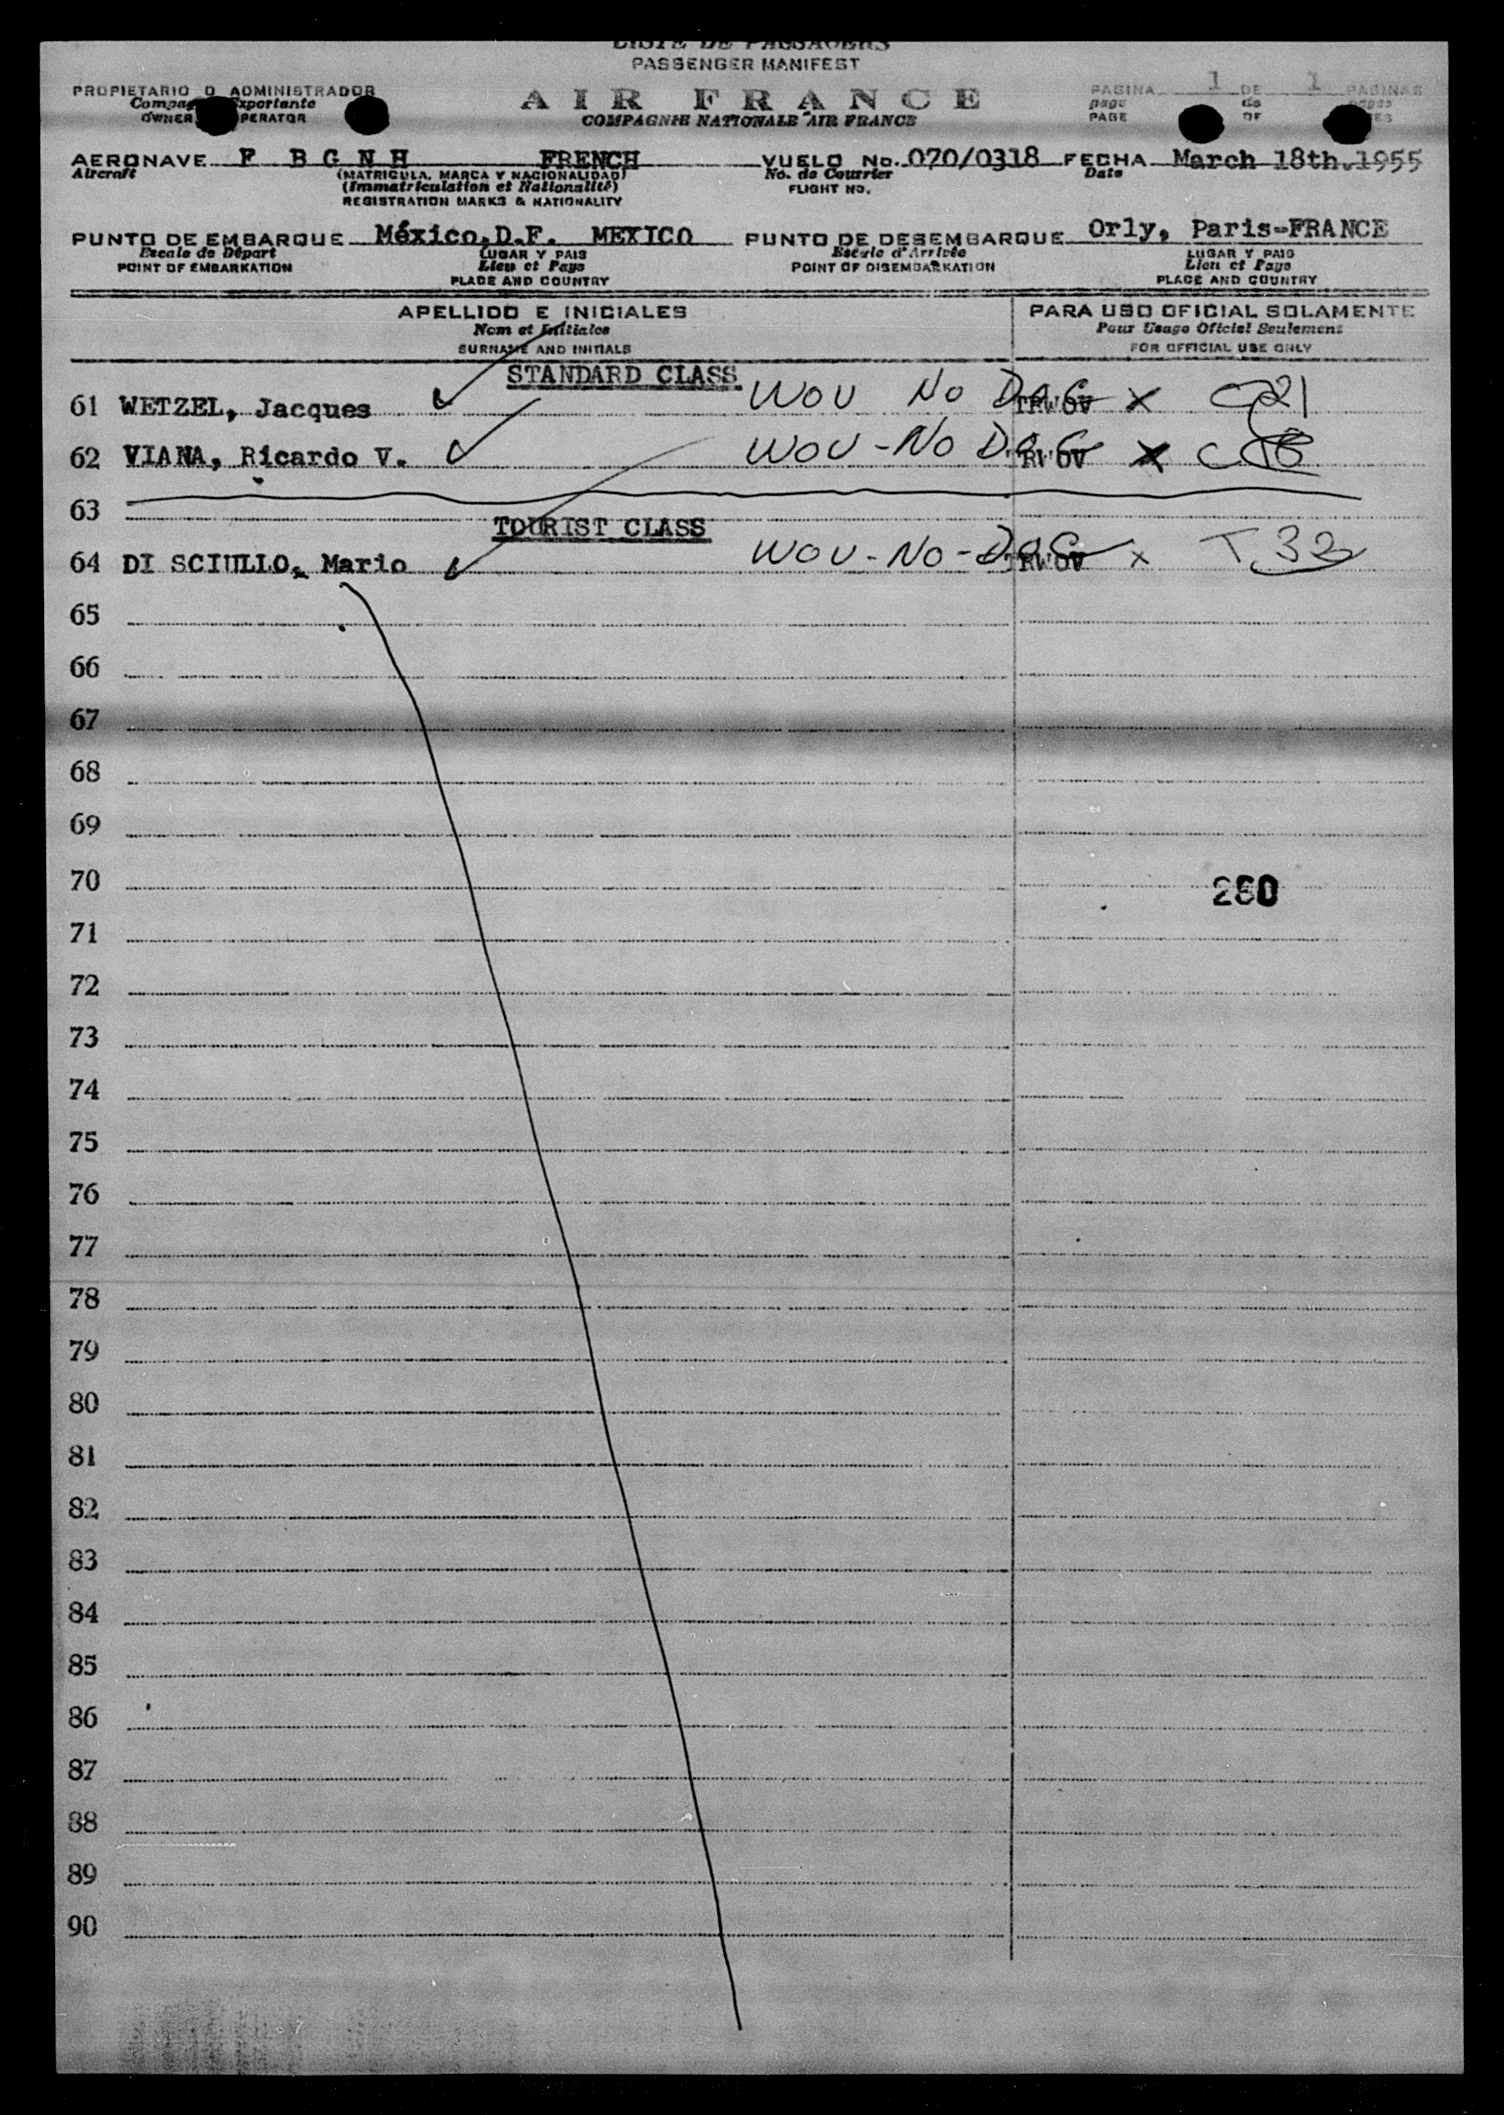 LISTE DE PASSAGERS
PASSENGER MANIFEST
PROPIETARIO O ADMINISTRADOR
OWNER
AIR FRANCE
COMPAGNIE NATIONALE AIR FRANCE
PAGINA 1 DE 1 PAGINAS
page de pages
PAGE OF
AERONAVE F B G N H FRENCH VUELO No. 070/0318 FECHA March 18th.1955
Aircraft (MATRICULA, MARCA Y NACIONALIDAD) No. de Courrier Date
(Immatriculation et Nationalité) FLIGHT NO.
REGISTRATION MARKS & NATIONALITY
PUNTO DE EMBARQUE México,D.F. MEXICO PUNTO DE DESEMBARQUE Orly, Paris-FRANCE
Escale de Départ LUGAR Y PAIS Escale d'Arrivée LUGAR Y PAIS
POINT OF EMBARKATION Lieu et Pays POINT OF DISEMBARKATION Lieu et Pays
PLACE AND COUNTRY PLACE AND COUNTRY
APELLIDO E INICIALES PARA USO OFICIAL SOLAMENTE
Nom et Initiales Pour Usage Officiel Seulement
SURNAME AND INITIALS FOR OFFICIAL USE ONLY
STANDARD CLASS
61 WETZEL, Jacques WOV No TRWOV X
62 VIANA, Ricardo V. WOV - No TRWOV X
63
TOURIST CLASS
64 DI SCIULLO, Mario WOV - No - TRWOV X T 32
65
66
67
68
69
70 260
71
72
73
74
75
76
77
78
79
80
81
82
83
84
85
86
87
88
89
90